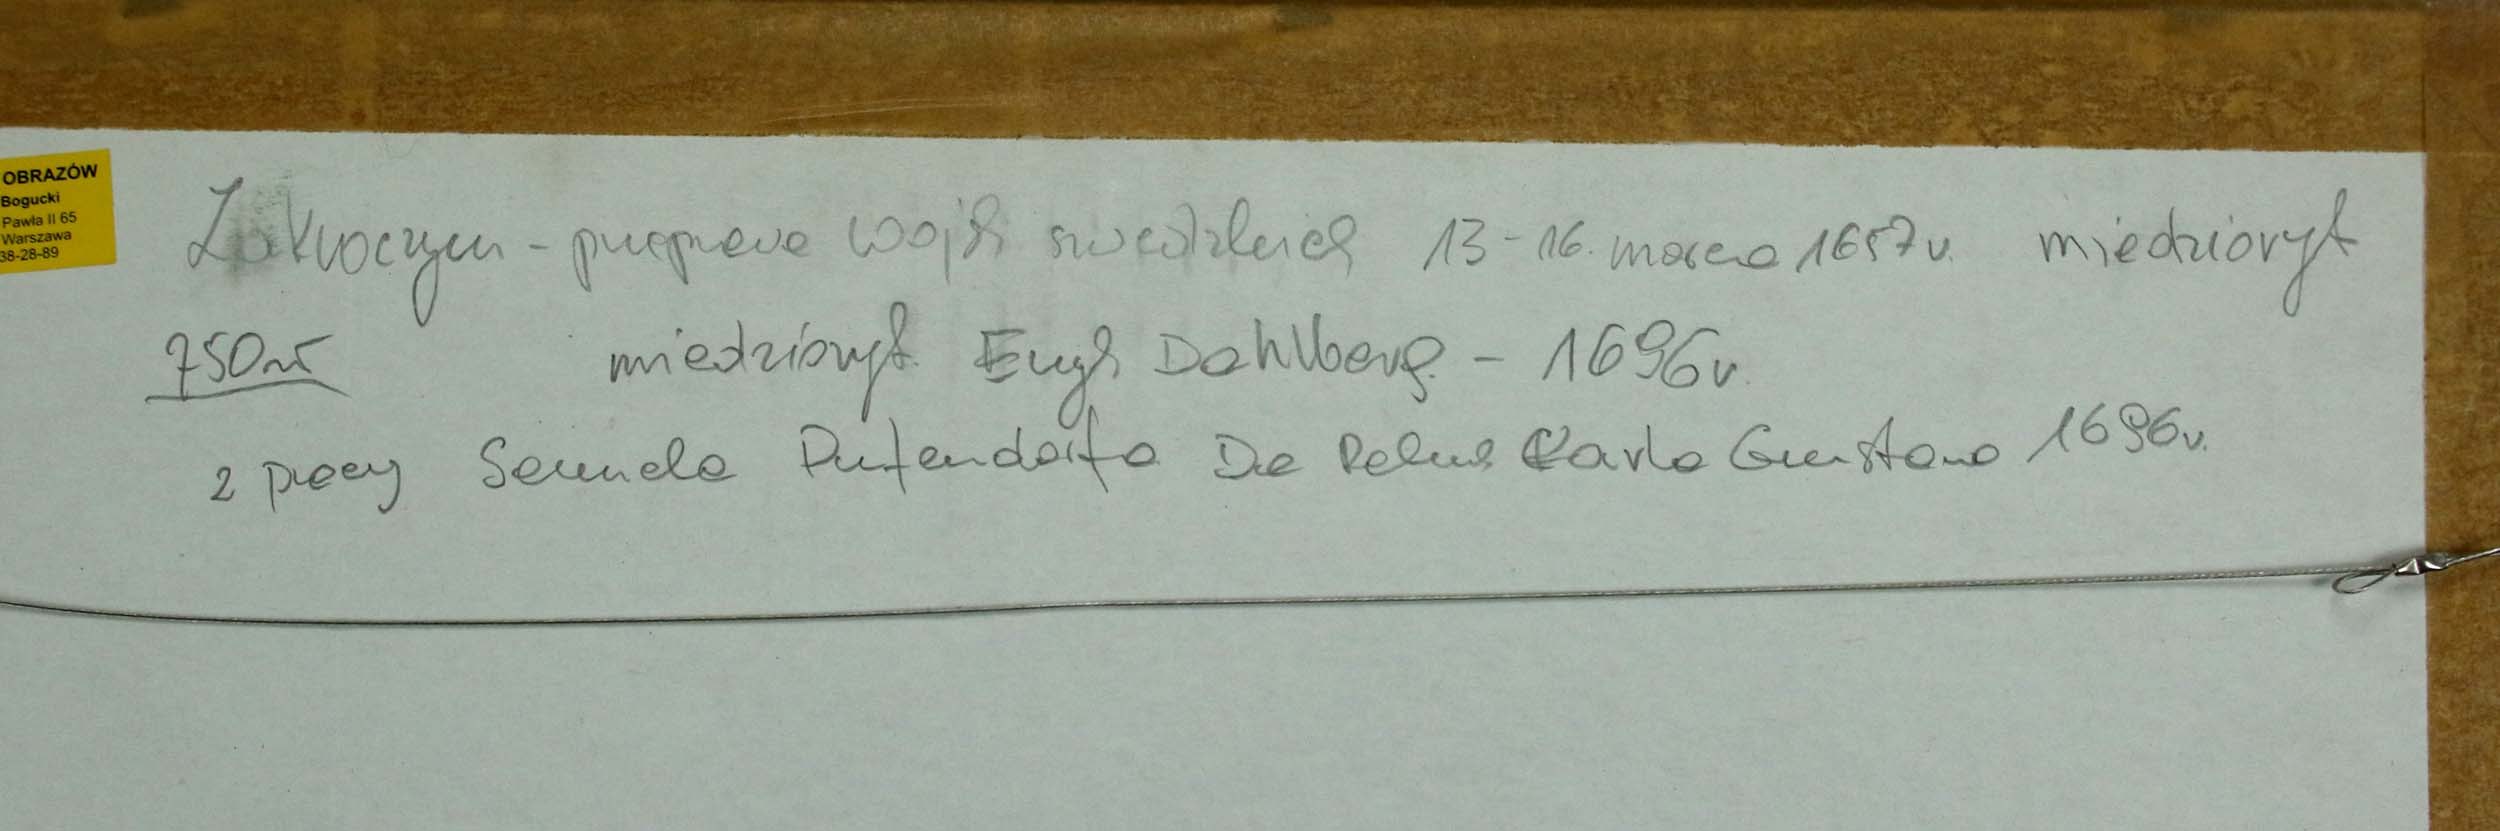 OBRAZÓW
Bogucki
Pawła II 65
Warszawa
38-28-89
Zakroczym - przeprawa wojsk szwedzkich 13-16. marca 1657 r. miedzioryt
750 zł miedzioryt. Eryk Dahlberg - 1696 r.
z pracy Samuela Pufendorfa De Rebus Carlo Gustavo 1696 r.